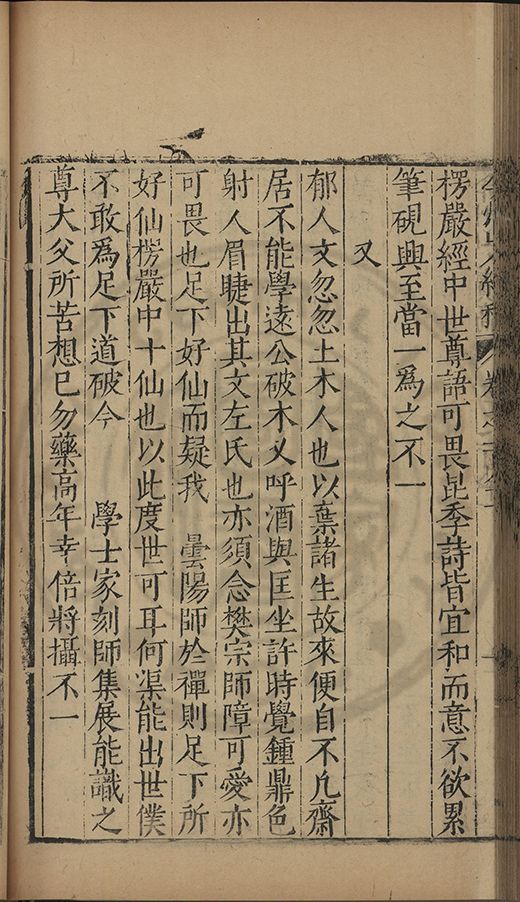 楞嚴經中世尊語可畏昆季詩皆宜和而意不欲累
筆硯興至當一爲之不一
又
郁人文忽忽土木人也以葉諸生故來便自不凡齋
居不能學遠公破木义呼酒與匡坐許時覺鍾鼎色
射人眉睫出其文左氏也亦須念樊宗師障可愛亦
可畏也足下好仙而疑我 曇陽師於禪則足下所
好仙楞嚴中十仙也以此度世可耳何渠能出世僕
不敢爲足下道破今 學士家刻師集展能識之
尊大父所苦想已勿藥高年幸倍將攝不一